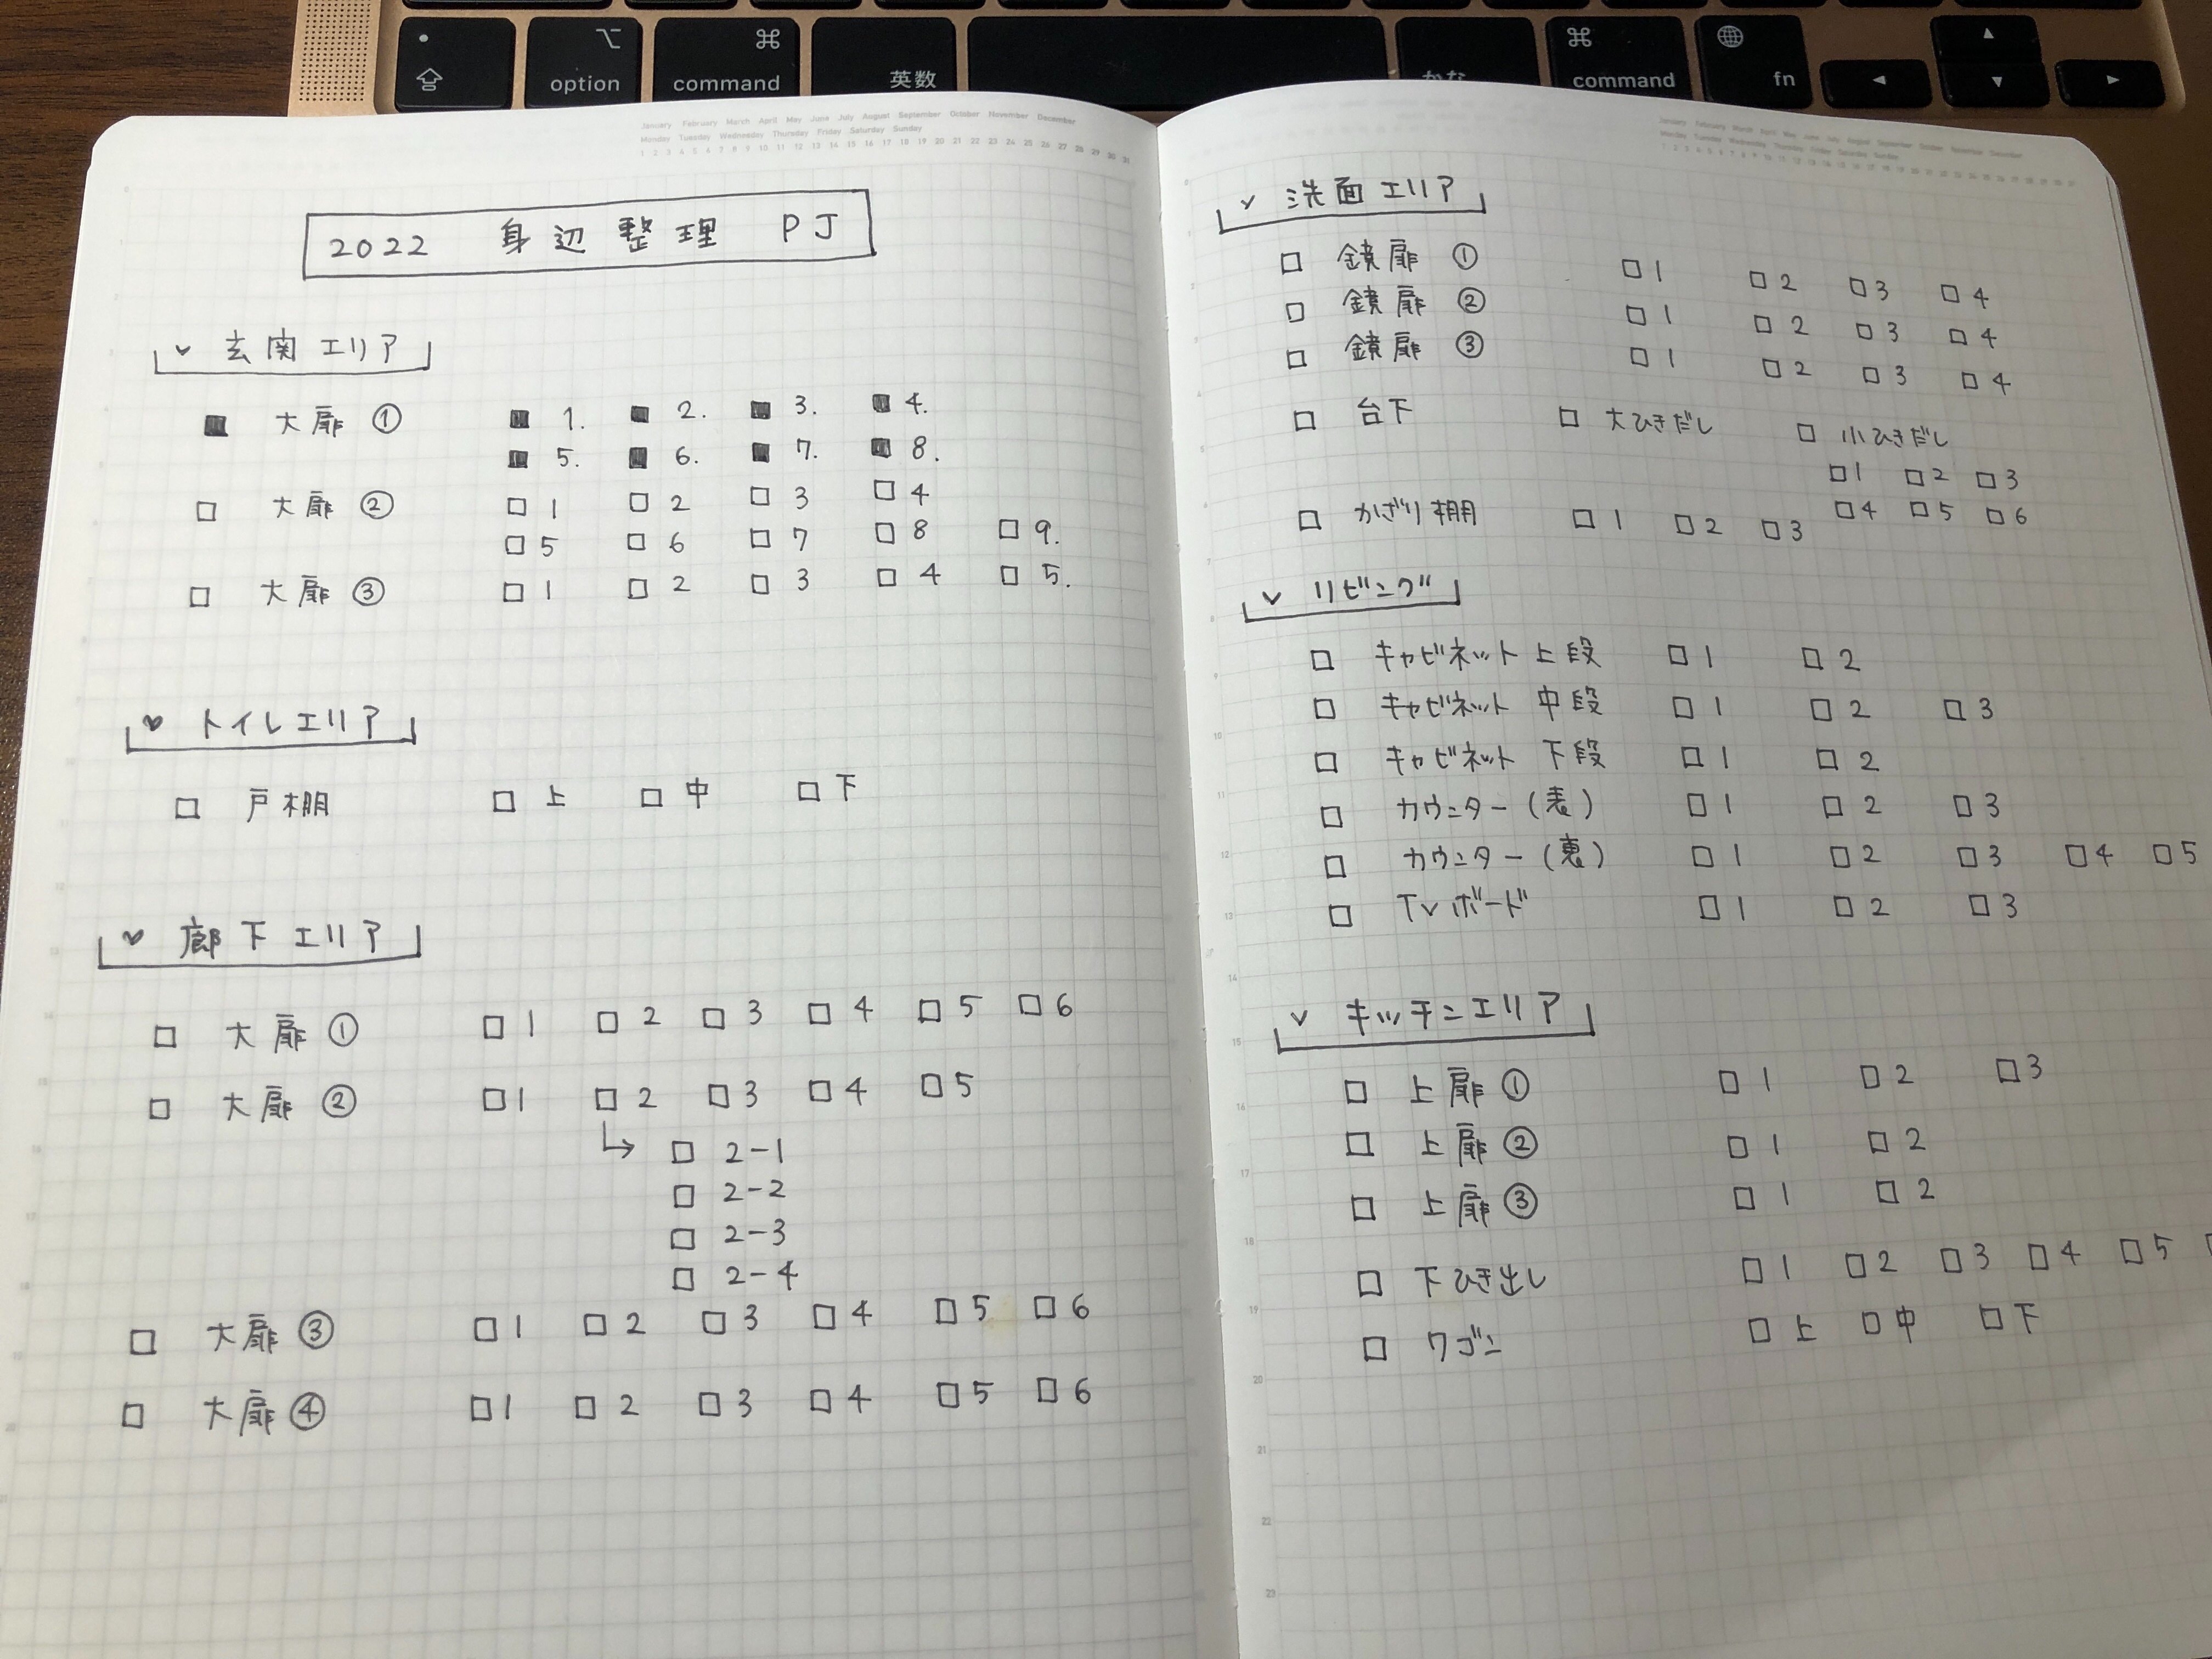 option
command
英数
かな
command
fn
January February March April May June July August September October November December
Monday Tuesday Wednesday Thursday Friday Saturday Sunday
1 2 3 4 5 6 7 8 9 10 11 12 13 14 15 16 17 18 19 20 21 22 23 24 25 26 27 28 29 30 31
2022 身辺整理 PJ
✓ 玄関エリア
■ 大扉① ■ 1. ■ 2. ■ 3. ■ 4.
■ 5. ■ 6. ■ 7. ■ 8.
□ 大扉② □ 1 □ 2 □ 3 □ 4
□ 5 □ 6 □ 7 □ 8 □ 9.
□ 大扉③ □ 1 □ 2 □ 3 □ 4 □ 5.
✓ トイレエリア
□ 戸棚 □ 上 □ 中 □ 下
✓ 廊下エリア
□ 大扉① □ 1 □ 2 □ 3 □ 4 □ 5 □ 6
□ 大扉② □ 1 □ 2 □ 3 □ 4 □ 5
↳ □ 2-1
□ 2-2
□ 2-3
□ 2-4
□ 大扉③ □ 1 □ 2 □ 3 □ 4 □ 5 □ 6
□ 大扉④ □ 1 □ 2 □ 3 □ 4 □ 5 □ 6
✓ 洗面エリア
□ 鏡扉① □ 1 □ 2 □ 3 □ 4
□ 鏡扉② □ 1 □ 2 □ 3 □ 4
□ 鏡扉③ □ 1 □ 2 □ 3 □ 4
□ 台下 □ 大ひきだし □ 小ひきだし
□ 1 □ 2 □ 3
□ 4 □ 5 □ 6
□ かざり棚 □ 1 □ 2 □ 3
✓ リビング
□ キャビネット上段 □ 1 □ 2
□ キャビネット中段 □ 1 □ 2 □ 3
□ キャビネット下段 □ 1 □ 2
□ カウンター(表) □ 1 □ 2 □ 3
□ カウンター(裏) □ 1 □ 2 □ 3 □ 4 □ 5
□ TVボード □ 1 □ 2 □ 3
✓ キッチンエリア
□ 上扉① □ 1 □ 2 □ 3
□ 上扉② □ 1 □ 2
□ 上扉③ □ 1 □ 2
□ 下ひき出し □ 1 □ 2 □ 3 □ 4 □ 5
□ ワゴン □ 上 □ 中 □ 下